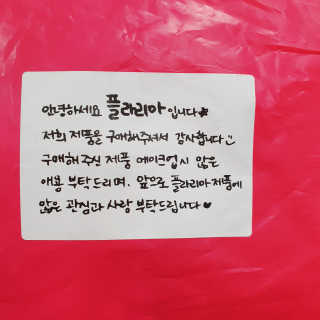 안녕하세요 플라리아입니다★
저희 제품을 구매해주셔서 감사합니다:)
구매해주신 제품 메이크업시 많은
애용 부탁드리며, 앞으로 플라리아제품에
많은 관심과 사랑 부탁드립니다♥